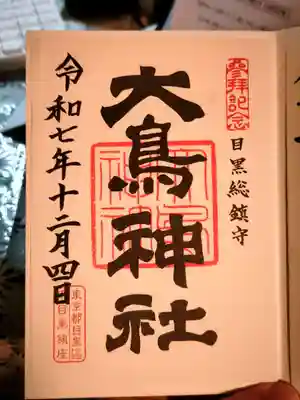 参拝記念
目黒総鎮守
大鳥神社
令和七年十二月四日
東京都目黒区
目黒鎮座